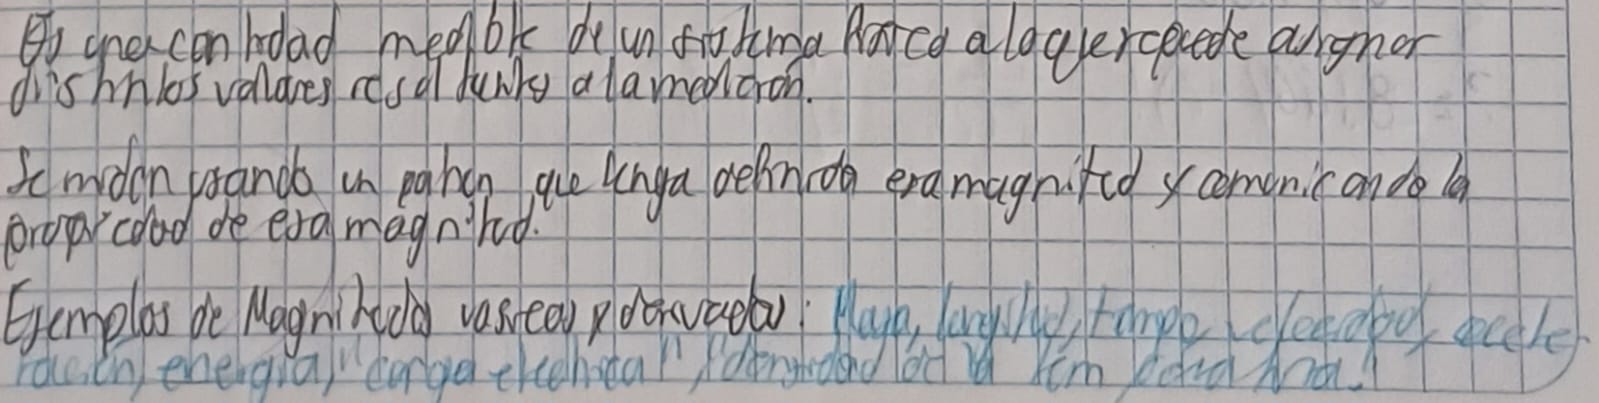 Es una cantidad medible de un sistema físico a la que se puede asignar
distintos valores resultantes a la medición.
Se miden usando un patrón que tenga definida esa magnitud y comunicando la
propiedad de esa magnitud.
Ejemplos de Magnitudes vasicas y derivadas: Masa, longitud, tiempo, velocidad, acele
ración, energía, "carga electrica", densidad de la